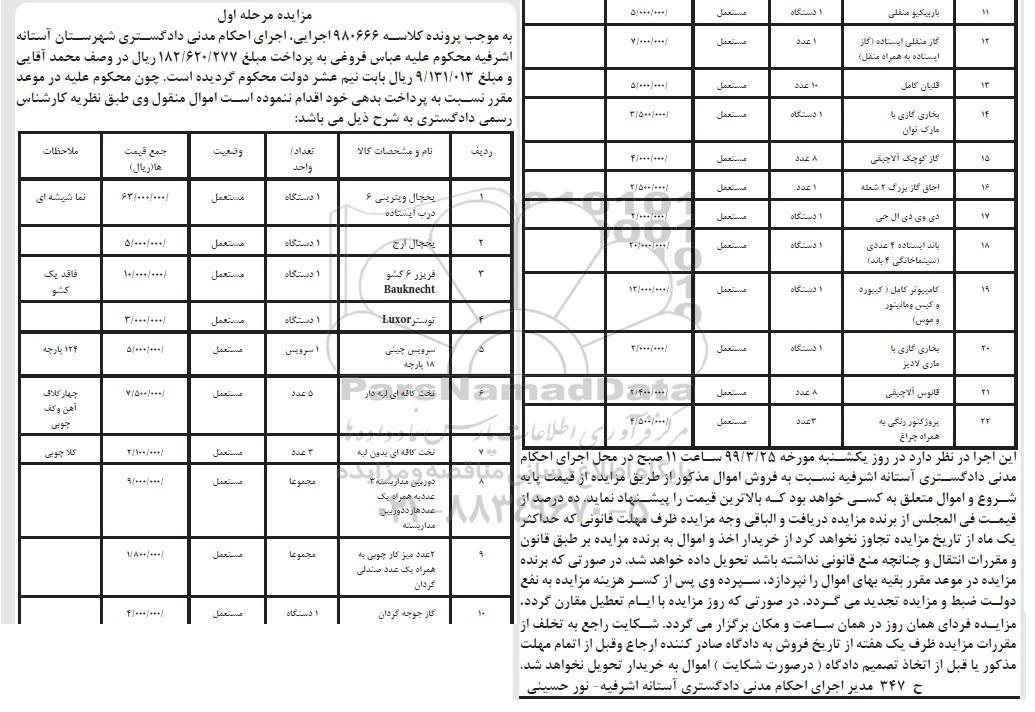 مزایده مرحله اول
به موجب پرونده کلاسه ۹۸۰۶۶۶ اجرایی، اجرای احکام مدنی دادگستری شهرستان آستانه
اشرفیه محکوم علیه عباس فروغی به پرداخت مبلغ ۱۸۲/۶۲۰/۲۷۷ ریال در وصف محمد آقایی
و مبلغ ۹/۱۳۱/۰۱۳ ریال بابت نیم عشر دولت محکوم گردیده است. چون محکوم علیه در موعد
مقرر نسبت به پرداخت بدهی خود اقدام ننموده است اموال منقول وی طبق نظریه کارشناس
رسمی دادگستری به شرح ذیل می باشد:
ردیف نام و مشخصات کالا تعداد/ واحد وضعیت جمع قیمت ها(ریال) ملاحظات
۱ یخچال ویترینی ۶ درب ایستاده ۱ دستگاه مستعمل ۶۳/۰۰۰/۰۰۰/ نما شیشه ای
۲ یخچال ارج ۱ دستگاه مستعمل ۵/۰۰۰/۰۰۰/
۳ فریزر ۶ کشو Bauknecht ۱ دستگاه مستعمل ۱۰/۰۰۰/۰۰۰/ فاقد یک کشو
۴ توستر Luxor ۱ دستگاه مستعمل ۳/۰۰۰/۰۰۰/
۵ سرویس چینی ۱۸ پارچه ۱ سرویس مستعمل ۵/۰۰۰/۰۰۰/ ۱۲۴ پارچه
۶ تخت کافه ای لبه دار ۵ عدد مستعمل ۷/۵۰۰/۰۰۰/ چهارکلاف آهن وکف چوبی
۷ تخت کافه ای بدون لبه ۳ عدد مستعمل ۲/۱۰۰/۰۰۰/ کلا چوبی
۸ دوربین مداربسته۳ عددبه همراه یک عددهارددوربین مداربسته مجموعا مستعمل ۹/۰۰۰/۰۰۰/
۹ ۲عدد میز کار چوبی به همراه یک عدد صندلی گردان مجموعا مستعمل ۱/۸۰۰/۰۰۰/
۱۰ گاز جوجه گردان ۱ دستگاه مستعمل ۴/۰۰۰/۰۰۰/
۱۱ باربیکیو منقلی ۱ دستگاه مستعمل ۵/۰۰۰/۰۰۰/
۱۲ گاز منقلی ایستاده (گاز ایستاده به همراه منقل) ۱ عدد مستعمل ۷/۰۰۰/۰۰۰/
۱۳ قلیان کامل ۱۰ عدد مستعمل ۵/۰۰۰/۰۰۰/
۱۴ بخاری گازی با مارک توان ۱ دستگاه مستعمل ۳/۵۰۰/۰۰۰/
۱۵ گاز کوچک آلاچیقی ۸ عدد مستعمل ۴/۰۰۰/۰۰۰/
۱۶ اجاق گاز بزرگ ۲ شعله ۱ عدد مستعمل ۲/۵۰۰/۰۰۰/
۱۷ دی وی دی ال جی ۱ دستگاه مستعمل ۲/۰۰۰/۰۰۰/
۱۸ باند ایستاده ۴ عددی (سینماخانگی ۴ باند) ۱ دستگاه مستعمل ۲۰/۰۰۰/۰۰۰/
۱۹ کامپیوتر کامل ( کیبورد و کیس ومانیتور و موس) ۱ دستگاه مستعمل ۱۲/۰۰۰/۰۰۰/
۲۰ بخاری گازی با ماری لادیز ۱ دستگاه مستعمل ۲/۰۰۰/۰۰۰/
۲۱ فانوس آلاچیقی ۸ عدد مستعمل ۲/۴۰۰/۰۰۰/
۲۲ پروژکتور رنگی به همراه چراغ ۳عدد مستعمل ۴/۵۰۰/۰۰۰/
این اجرا در نظر دارد در روز یکشنبه مورخه ۹۹/۳/۲۵ ساعت ۱۱ صبح در محل اجرای احکام
مدنی دادگستری آستانه اشرفیه نسبت به فروش اموال مذکور از طریق مزایده از قیمت پایه
شروع و اموال متعلق به کسی خواهد بود که بالاترین قیمت را پیشنهاد نماید. ده درصد از
قیمت فی المجلس از برنده مزایده دریافت و الباقی وجه مزایده ظرف مهلت قانونی که حداکثر
یک ماه از تاریخ مزایده تجاوز نخواهد کرد از خریدار اخذ و اموال به برنده مزایده بر طبق قانون
و مقررات انتقال و چنانچه منع قانونی نداشته باشد تحویل داده خواهد شد. در صورتی که برنده
مزایده در موعد مقرر بقیه بهای اموال را نپردازد، سپرده وی پس از کسر هزینه مزایده به نفع
دولت ضبط و مزایده تجدید می گردد. در صورتی که روز مزایده با ایام تعطیل مقارن گردد،
مزایده فردای همان روز در همان ساعت و مکان برگزار می گردد. شکایت راجع به تخلف از
مقررات مزایده ظرف یک هفته از تاریخ فروش به دادگاه صادر کننده ارجاع وقبل از اتمام مهلت
مذکور یا قبل از اتخاذ تصمیم دادگاه ( درصورت شکایت ) اموال به خریدار تحویل نخواهد شد.
ح ۳۴۷ مدیر اجرای احکام مدنی دادگستری آستانه اشرفیه- نور حسینی
ParsNamadData
مرکز فرآوری اطلاعات پارس نماد داده ها
پایگاه اطلاع رسانی مناقصه و مزایده
۰۲۱-۸۸۳۴۹۶۷۰-۵